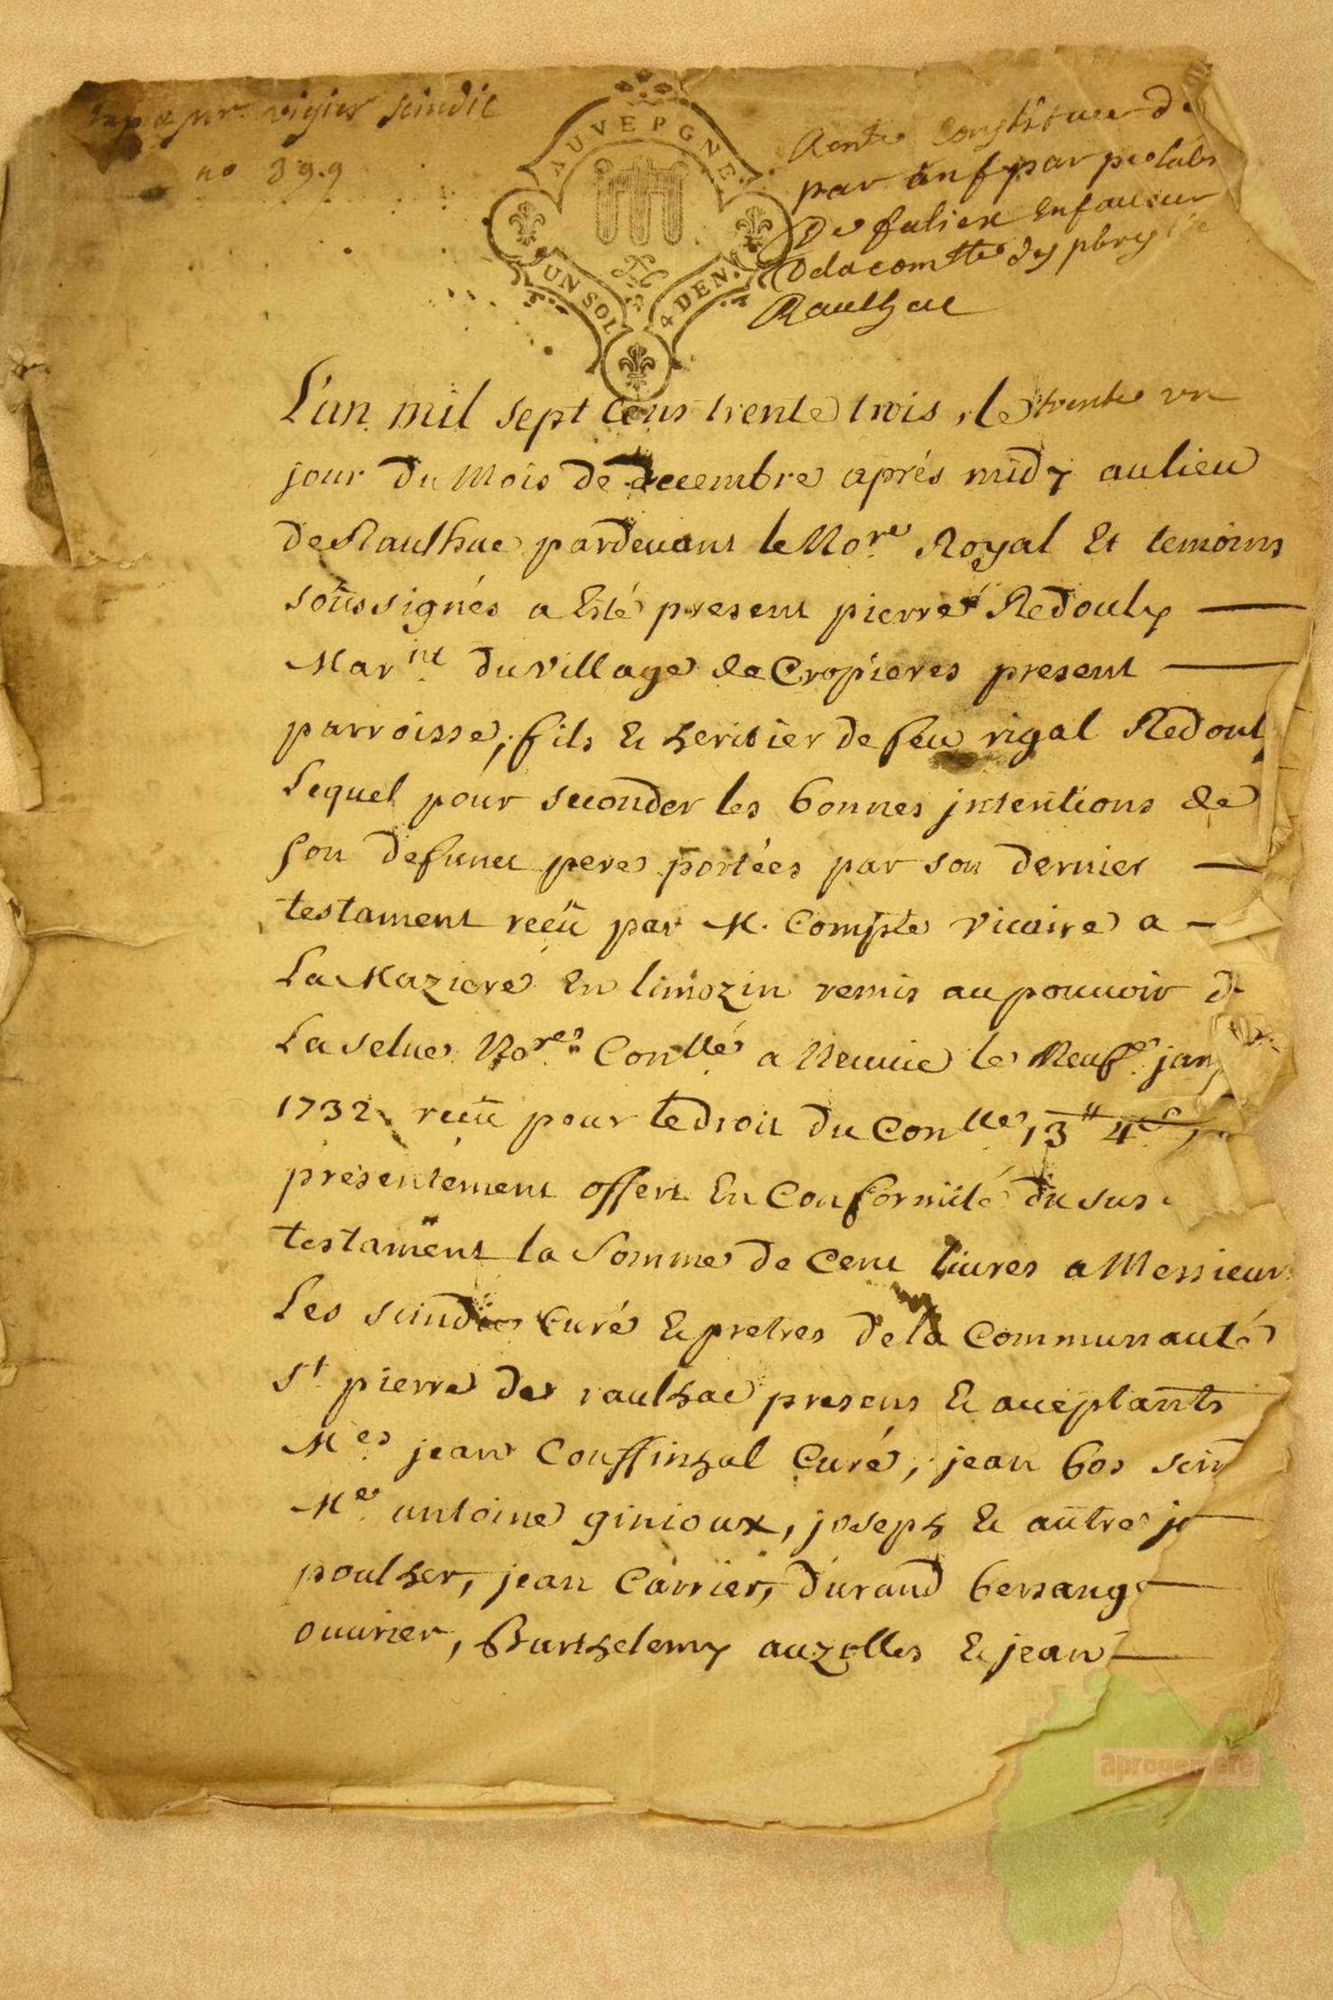 vigier scindic
no 399
AUVERGNE
UN SOL
4 DEN.
Rente Constituee
par
De falien En faveur
De la comtté des pbres
Raulhac
L'an mil sept cens trente trois, le trente un
jour du Mois de decembre aprés midy au lieu
de Raulhac pardevant le Nore Royal Et temoins
soussignés a Esté present pierre Redouly
Marnt du village de Cropieres present
parroisse, fils & heritier de feu rigal Redouly
Lequel pour seconder les bonnes jntentions de
son defunct pere portées par son dernier
testament reçü par M. Compte vicaire a
La Maziere En limozin remis au pouvoir d
La selve Nore Conllé a Neuvic le Neufe janv
1732 reçü pour le droit du Conlle 13tt 4s
presentement offert En Conformité du sus
testament la somme de Cent livres a Messieurs
Les scindic Curé & pretres de la Communauté
St pierre de raulhac presens & aceptants
Mes jean Couffinhal Curé, jean bos scin
Me antoine ginioux, joseph & autre j
poulher, jean Carrier, durand bersange
ouvrier, Barthelemy auzolles & jean
aprogemere